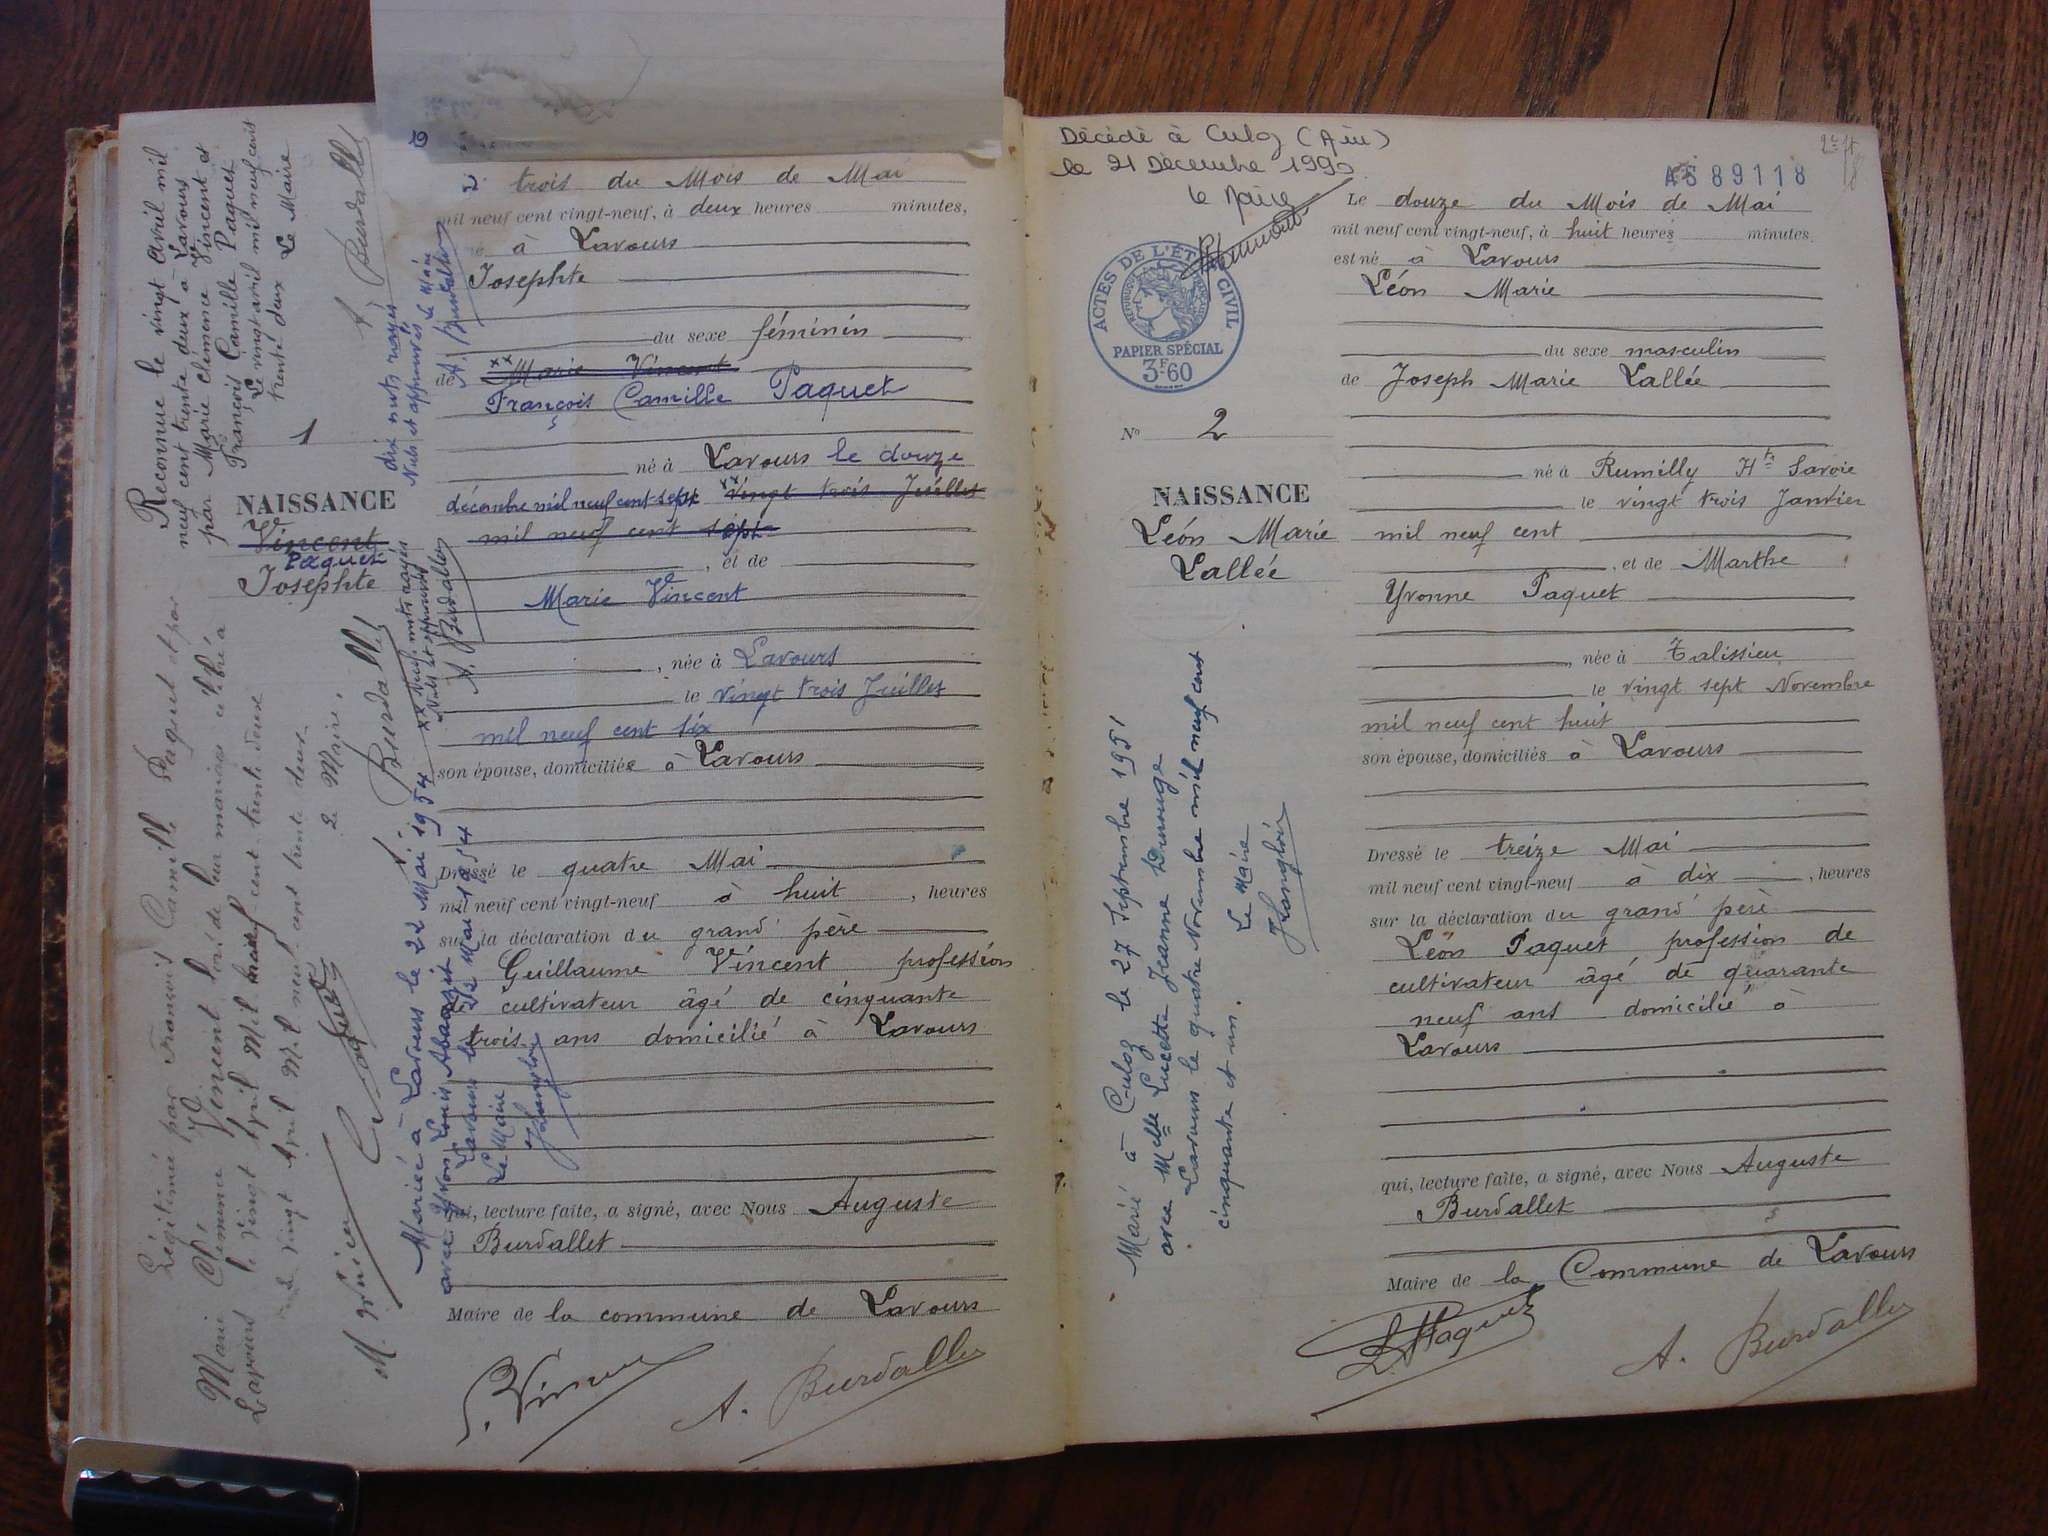 Reconnue le vingt avril mil
neuf cent trente deux à Lavours
par Marie Clémence Vincent et
François Camille Paquet
Le vingt avril mil neuf cent
trente deux Le Maire
A Burdallet
1
NAISSANCE
Vincent
Paquet
Josephte
Légitimée par François Camille Paquet et par
Marie Clémence Vincent lors de leur mariage célébré à
Lavours le vingt Avril Mil neuf cent trente deux
vingt Avril Mil neuf cent trente deux.
Le Maire,
A. Burdallet
dix mots rayés
Nuls et approuvés Le Maire
A. Burdallet
xx Neuf mots rayés
Nuls et approuvés
A. Burdallet
Mariée à Lavours le 22 Mai 1954
avec Yvon Louis
Lavours le 22 Mai 1954
Le Maire
trois du Mois de Mai
mil neuf cent vingt-neuf, à deux heures minutes,
à Lavours
Josephte
du sexe féminin
de Marie Vincent
François Camille Paquet
né à Lavours le douze
décembre mil neuf cent sept vingt trois Juillet
mil neuf cent sept
, et de
Marie Vincent
, née à Lavours
le vingt trois Juillet
mil neuf cent six
son épouse, domiciliée à Lavours
Dressé le quatre Mai
mil neuf cent vingt-neuf à huit , heures
sur la déclaration du grand père
Guillaume Vincent profession
de cultivateur âgé de cinquante
trois ans domicilié à Lavours
qui, lecture faite, a signé, avec Nous Auguste
Burdallet
Maire de la commune de Lavours
A. Burdallet
Décédé à Culoz (Ain)
le 21 Décembre 1990
le Maire
A589118
ACTES DE L'ÉTAT CIVIL
PAPIER SPÉCIAL
3F60
No 2
NAISSANCE
Léon Marie
Lallée
Marié à Culoz le 27 Septembre 1951
avec Melle Lucette Jeanne
Lavours le quatre Novembre mil neuf cent
cinquante et un.
Le Maire
Le douze du Mois de Mai
mil neuf cent vingt-neuf, à huit heures minutes
est né à Lavours
Léon Marie
du sexe masculin
de Joseph Marie Lallée
né à Rumilly Hte Savoie
le vingt trois Janvier
mil neuf cent
, et de Marthe
Yvonne Paquet
, née à Talissieu
le vingt sept Novembre
mil neuf cent huit
son épouse, domiciliés à Lavours
Dressé le treize Mai
mil neuf cent vingt-neuf à dix , heures
sur la déclaration du grand père
Léon Paquet profession de
cultivateur âgé de quarante
neuf ans domicilié à
Lavours
qui, lecture faite, a signé, avec Nous Auguste
Burdallet
Maire de la Commune de Lavours
L Paquet
A. Burdallet